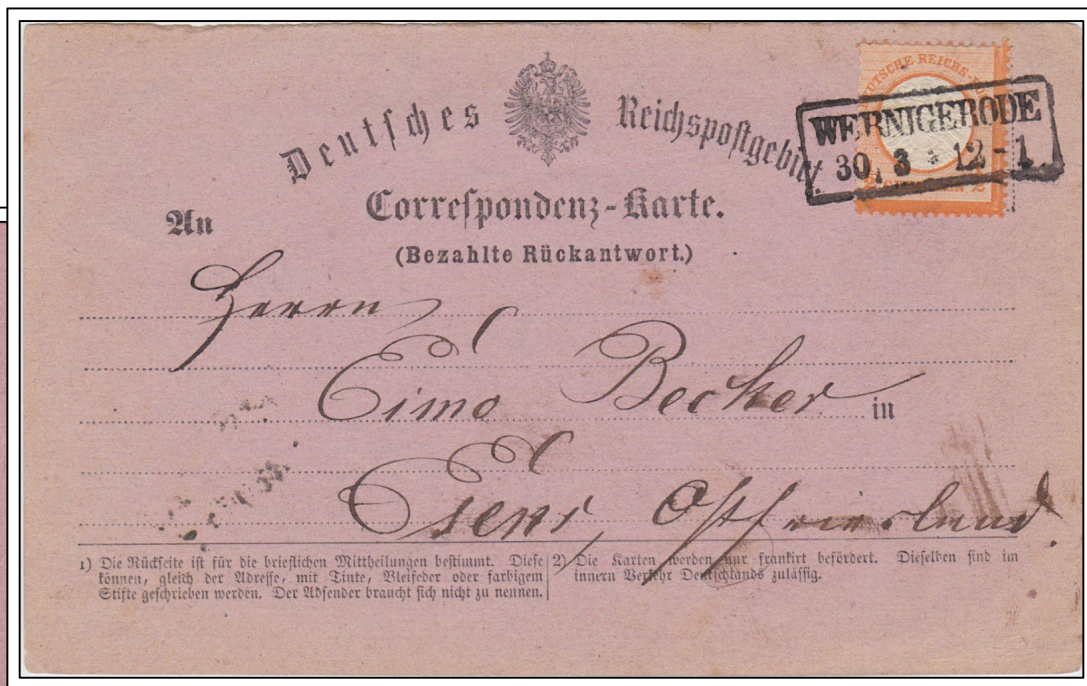 Deutsches Reichspostgebiet.
DEUTSCHE REICHS-
WERNIGERODE
30. 3 * 12-1
Correspondenz-Karte.
(Bezahlte Rückantwort.)
An
Herrn
Eimo Becker in
Esens, Ostfriesland.
1) Die Rückseite ist für die brieflichen Mittheilungen bestimmt. Diese
können, gleich der Adresse, mit Tinte, Bleifeder oder farbigem
Stifte geschrieben werden. Der Absender braucht sich nicht zu nennen.
2) Die Karten werden nur frankirt befördert. Dieselben sind im
innern Verkehr Deutschlands zulässig.